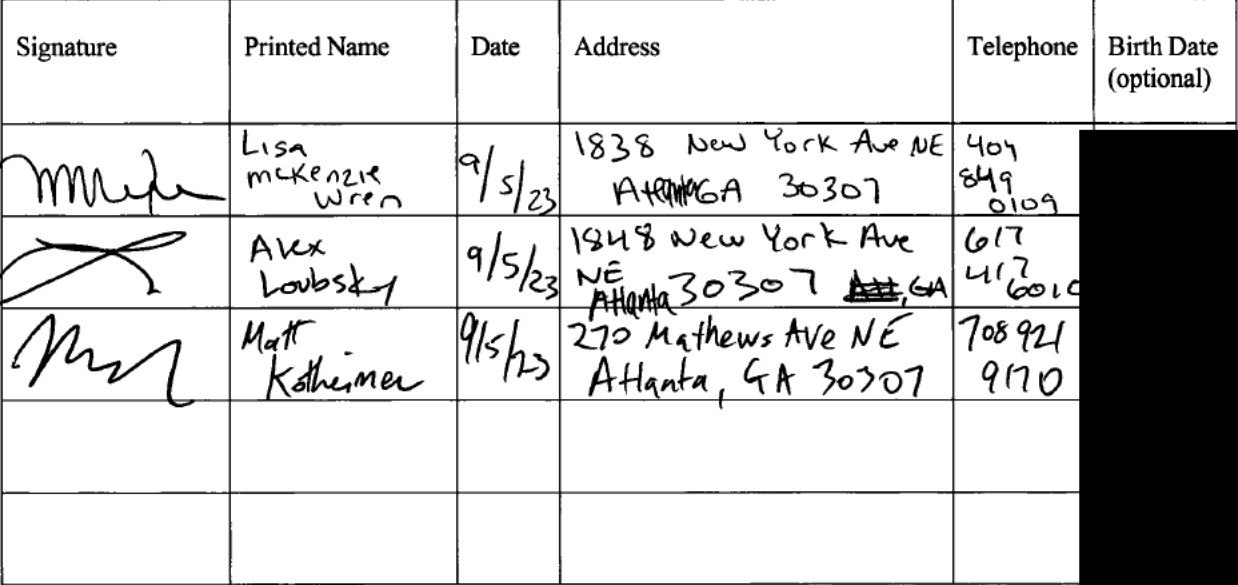 Signature Printed Name Date Address Telephone Birth Date
(optional)
Lisa
McKenzie
Wren
9/5/23
1838 New York Ave NE
Atlanta GA 30307
404
849
0109
Alex
Loubsky
9/5/23
1848 New York Ave
NE
Atlanta 30307 , GA
617
417
6010
Matt
Kotheimer
9/5/23
270 Mathews Ave NE
Atlanta, GA 30307
708 921
9170